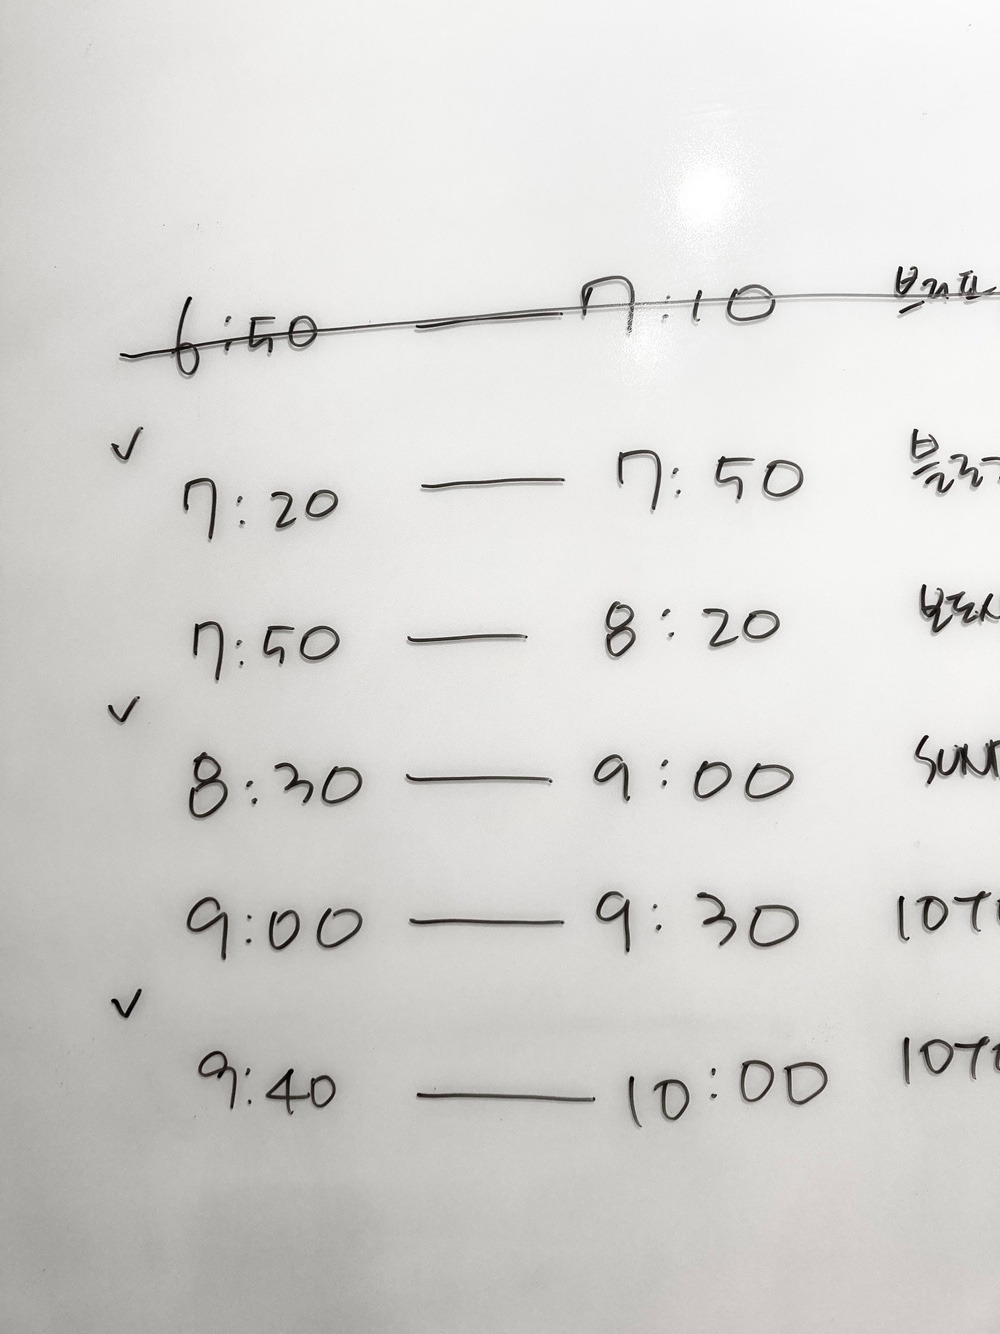 6:50 — 7:10 브리프
✓
7:20 — 7:50 블로
7:50 — 8:20 보도
✓
8:30 — 9:00 SUN
9:00 — 9:30 10
✓
9:40 — 10:00 10